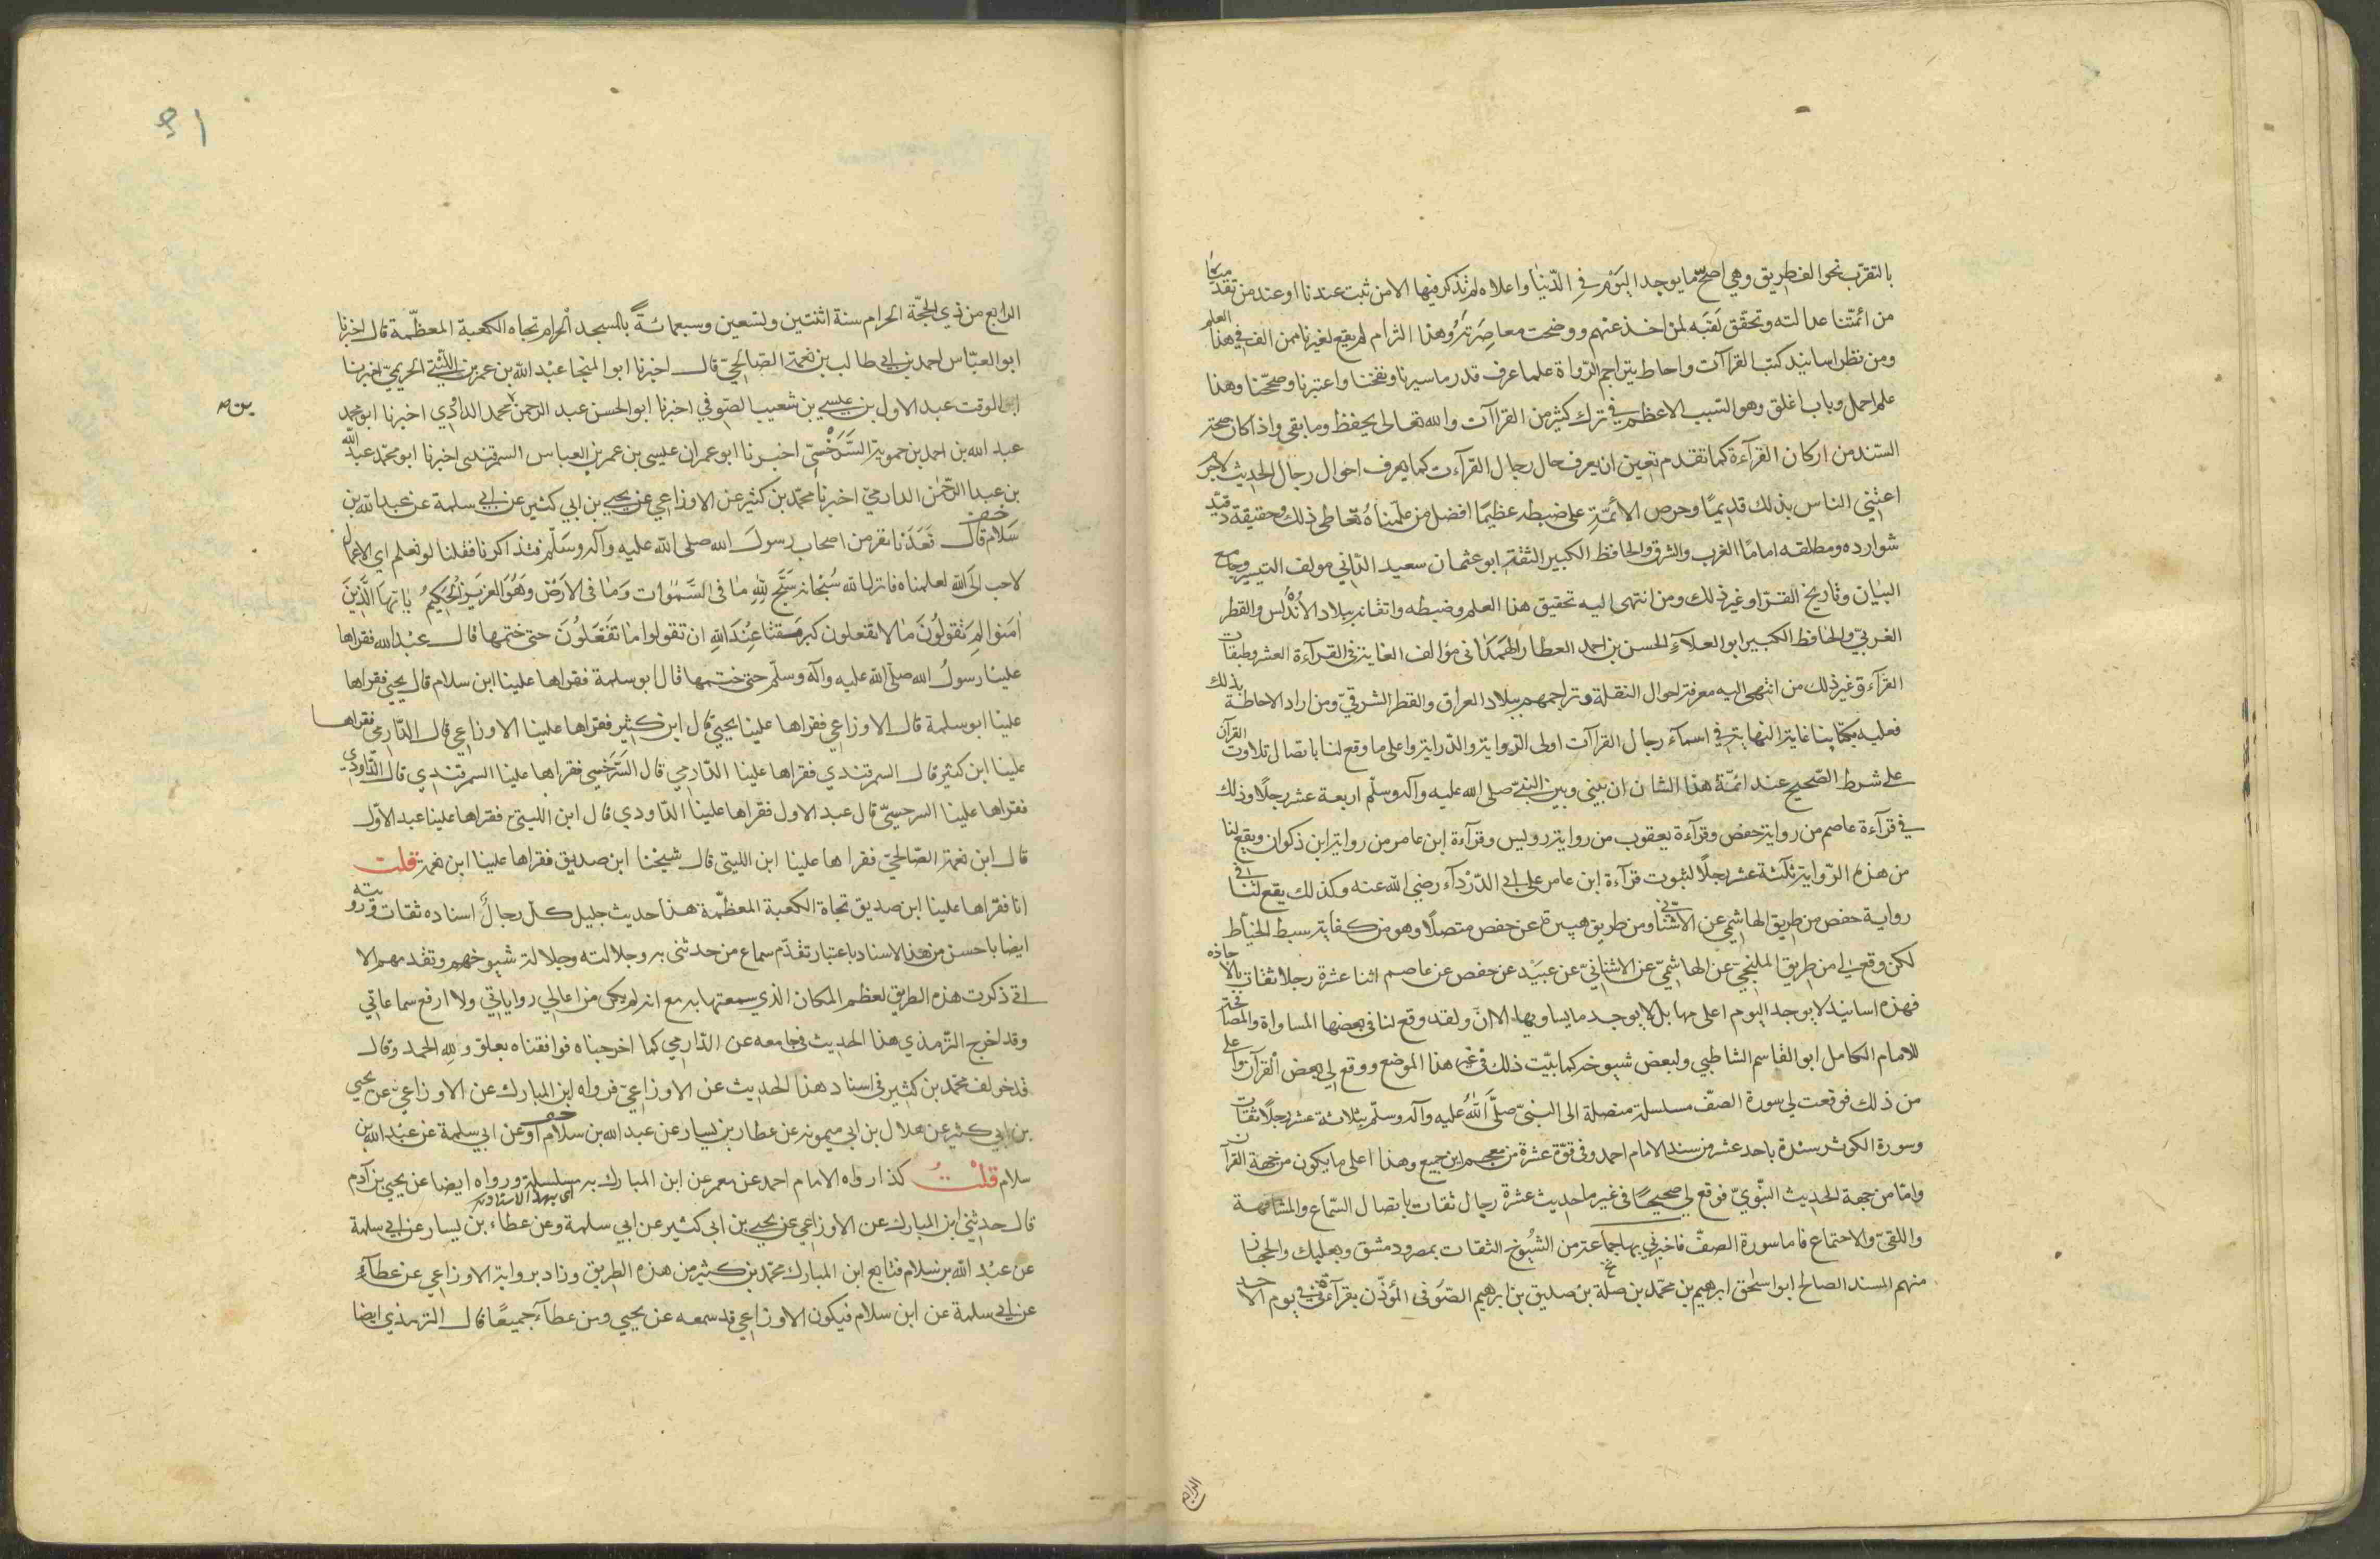 بالتقرّب نحو الف طريق وهي اصحّ ما يوجد اليوم في الدّنيا واعلاه لم نذكر فيها الا من ثبت عندنا او عند من تقدّمنا
من ائمّتنا عدالته وتحقّق لقيه لمن اخذ عنهم ووضحت معاصرته وهذا التزام لم يقع لغيرنا ممن الف في هذا العلم
ومن نظر اسانيد كتب القراآت واحاط بتراجم الرّواة علما عرف قدر ما سبرنا ونقحنا واعتبرنا وصحّحنا وهذا
علم اهمل وباب اغلق وهو السّبب الاعظم في ترك كثير من القراآت والله تعالى يحفظ وما بقى واذا كان صحة
السّند من اركان القرآءة كما تقدم تعين ان يعرف حال رجال القرآءت كما يعرف احوال رجال الحديث لا جرم
اعتنى الناس بذلك قديمًا وحرص الائمّة على ضبطه عظيمًا افضل من علمناه تعاطى ذلك وحقيقة وقيّد
شوارده ومطلقه امامًا الغرب والشرق والحافظ الكبير الثقة ابو عثمان سعيد الدّاني مولف التيسير وجامع
البيان وتاريخ القرّا وغير ذلك ومن انتهى اليه تحقيق هذا العلم وضبطه واتقانه ببلاد الاندلس والقطر
الغربيّ والحافظ الكبير ابو العلآء الحسن بن احمد العطار الهَمَدَانى مؤالف الغاية في القرآءة العشر وطبقات
القرآء وغير ذلك من انتهى اليه معرفة احوال النقلة وتراجمهم ببلاد العراق والقطر الشرقيّ ومن اراد الاحاطة بذلك
فعليه بكتابنا غاية النهاية في اسمآء رجال القراآت اولى الرّواية والدّراية واعلى ما وقع لنا باتصال تلاوت القرآن
على شرط الصّحيح عند ائمّة هذا الشان ان بيني وبين النبيّ صلى الله عليه وآله وسلّم اربعة عشر رجلًا وذلك
في قرآءة عاصم من رواية حفص وقرآءة يعقوب من رواية رويس وقرآءة ابن عامر من رواية ابن ذكوان ويقع لنا
من هذه الرّواية ثلثة عشر رجلًا لثبوت قرآءة ابن عامر على ابي الدّرْدآء رضي الله عنه وكذلك يقع لنا في
رواية حفص من طريق الهاشمي عن الاشناني ومن طريق هبيرة عن حفص متصلًا وهو من كفاية سبط الخيّاط
لكن وقع لي من طريق المليحيّ عن الهاشميّ عن الاشنانيّ عن عبيَد عن حفص عن عاصم اثنا عشرة رجلا ثقات بالاجازه
فهذه اسانيد لا يوجد اليوم اعلى منها بل لا يوجد ما يساويها الان ولقد وقع لنا في بعضها المساواة والمصافحة
للامام الكامل ابو القاسم الشاطبي ولبعض شيوخه كما بيّت ذلك في غير هذا الموضع ووقع لي بعض القرآن واعلى
من ذلك فوقعت لي سورة الصفّ مسلسلة متصلة الى النبيّ صلّى الله عليه وآله وسلّم بثلاثة عشر رجلًا ثقات
وسورة الكوثر سندة باحد عشر من سند الامام احمد وفي قوّة عشرة من معجم ابن جميع وهذا اعلى ما يكون من جهة القرآن
وامّا من جهة الحديث النّبويّ فوقع لي صحيحًا في غير ما حديث عشرة رجال ثقات باتصال السّماع والمشافهة
واللقيّ والاجتماع فاما سورة الصفّ فاخبرني بها جماعة من الشّيوخ الثقات بمصر ودمشق وبعلبك والحجاز
منهم المسند الصالح ابو اسحق ابرهيم بن محمّد بن صلة بن صديق بن ابرهيم الصّوفي المؤذّن بقرآءتي في يوم الاحد
الرابع
الرابع من ذي الحجّة الحرام سنة اثنتين وتسعين وسبعمائةً بالمسجد الحرام تجاه الكعبة المعظّمة قال اخبرنا
ابو العبّاس احمد بن ابي طالب بن نعمة الصّالحيّ قال اخبرنا ابو المنجا عبد الله بن عمر بن اللّتي الحريميّ اخبرنا
ابو الوقت عبد الاول بن عيسى بن شعيب الصّوفي اخبرنا ابو الحسن عبد الرحمن محمد الداوُدي اخبرنا ابو محمد
بن
عبد الله بن احمد بن حموية السَّرَخْسيّ اخبرنا ابو عمران عيسى بن عمر بن العباس السمرقندى اخبرنا ابو محمّد عبد الله
بن عبد الرّحمن الدارميّ اخبرنا محمّد بن كثير عن الاوزاعي عن يحيى بن ابي كثير عن ابي سلمة عن عبد الله بن
سَلام قال قَعَدْنا نفر من اصحاب رسول الله صلى الله عليه وآله وسَلّم فتذاكرنا فقلنا لو نعلم اي الاعمال
لاحب الى الله لعلمناه فانزل الله سُبْحانه سَبَّحَ لِلّهِ مٰا فى السَّمٰوات وَمٰا فى الاَرَضْ وَهُوَ العزيز الحَكِيمُ يٰا ايّهَا الَّذِينَ
اٰمَنوا لِمَ تَقولُونَ مٰا لا تفعلون كبر مقتًا عِنْدَ اللهِ ان تقولوا مٰا لا تَفعَلُوُنَ حتى ختمها قال عبْد الله فقراها
علينا رسولُ الله صلّى الله عليه وآله وسلّم حتى ختمها قال ابو سلمة فقراها علينا ابن سلام قال يحيى فقراها
علينا ابو سلمة قال الاوزاعي فقراها علينا يحيى قال ابن كثير فقراها علينا الاوزاعي قال الدّارمى فقراها
علينا ابن كثير قال السمرقندي فقراها علينا الدّارمي قال السّرخسي فقراها علينا السمرقندي قال الدّاودي
فقراها علينا السرخسيّ قال عبد الاول فقراها علينا الدّاودي قال ابن اللتيّ فقراها علينا عبد الاوّل
قال ابن نعمة الصّالحيّ فقراها علينا ابن اللتي قال شيخنا ابن صديق فقراها علينا ابن نعمة قلت
انا فقراها علينا ابن صديق تجاة الكعبة المعظّمة هذا حديث جليل كلّ رجال اسناده ثقات ورويته
ايضا باحسن من هذا الاسناد باعتبار تقدّم سماع من حدثنى به وجلالته وجلالة شيوخهم وتقدمهم الا
انّي ذكرت هذه الطريق لعظم المكان الذي سمعتها به مع انه لم يكن من اعالي رواياتي ولا ارفع سماعاتي
وقد اخرج التّرمذي هذا الحديث في جامعه عن الدّارمي كما اخرجناه فوافقناه بعلوّ ولله الحمد وقال
قد خولف محمّد بن كثير في اسناد هذا الحديث عن الاوزاعيّ فرواه ابن المبارك عن الاوزاعيّ عن يحيى
بن ابي كثير عن هلال بن ابي ميمونه عن عطار بن يسار عن عبد الله بن سلام او عن ابي سلمة عن عبْد الله بن
سلام قلْتُ كذا رواه الامام احمد عن معمر عن ابن المبارك به مسلسلة ورواه ايضا عن يحيى بن آدم
قال حدثني ابن المبارك عن الاوزاعي عن يحيى بن ابي كثير عن ابي سلمة وعن عطاء بن يسار عن ابي سلمة
عن عبْد الله بن سلام فتابع ابن المبارك محمّد بن كثير من هذه الطريق وزاد برواية الاوزاعي عن عطآء
عن ابي سلمة عن ابن سلام فيكون الاوزاعي قد سمعه عن يحيى ومن عطآء جميعًا قال الترمذي ايضا